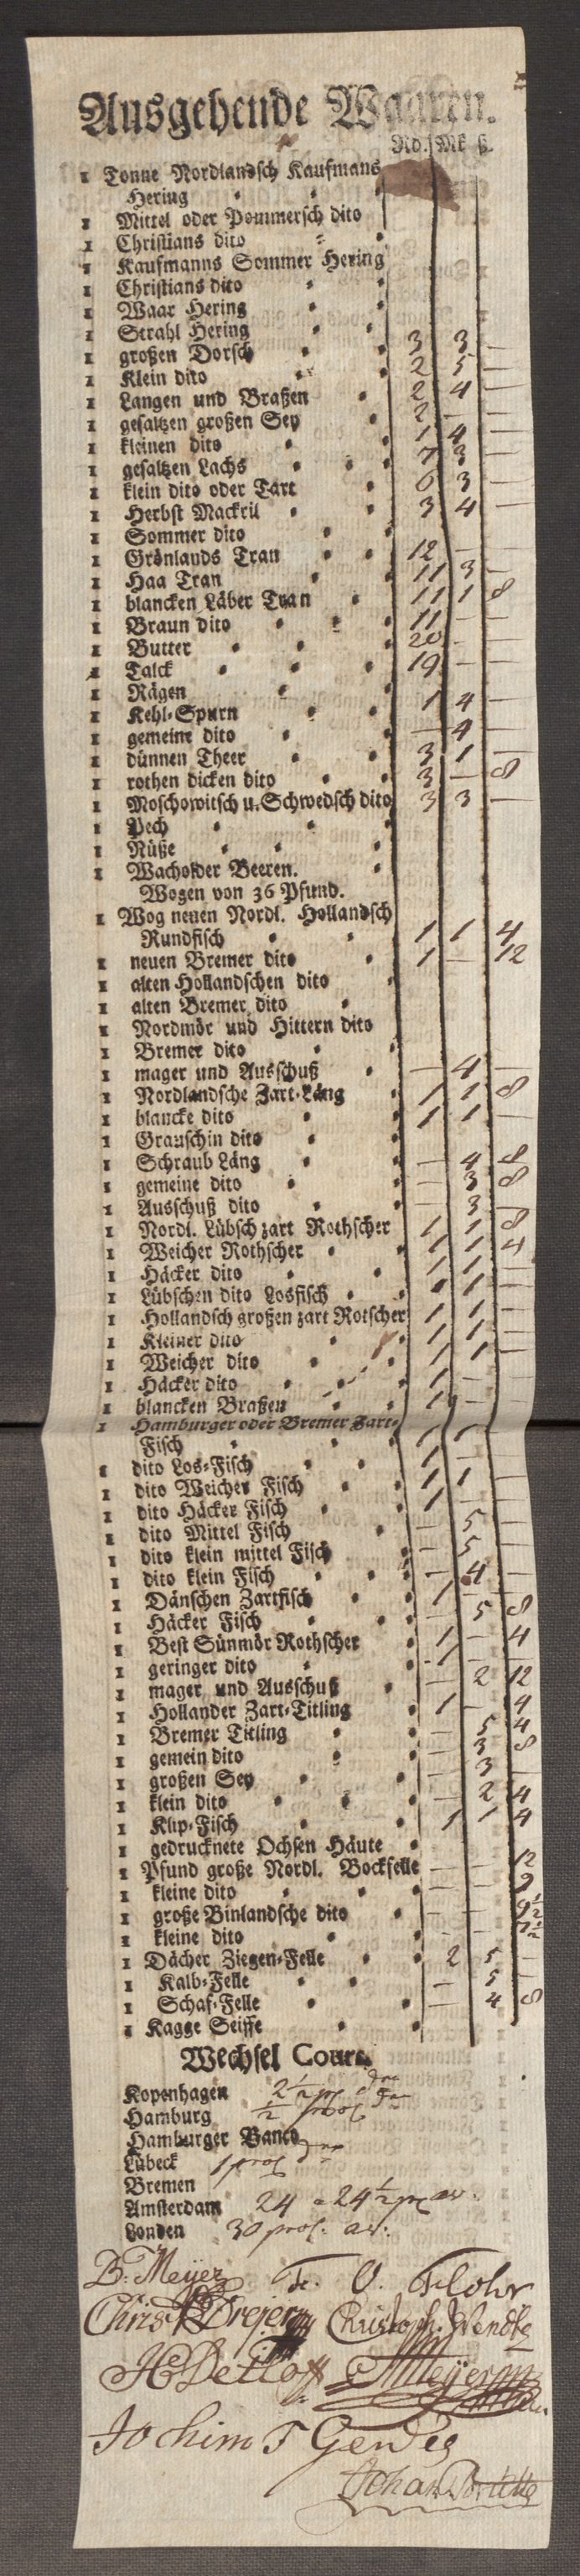 Ausgehende Waaren.
Rd. Mk ß.
1 Tonne Nordlandsch Kaufmans
Hering
1 Mittel oder Pommersch dito
1 Christians dito
1 Kaufmanns Sommer Hering
1 Christians dito
1 Waar Hering
1 Strahl Hering
1 großen Dorsch 3 3 —
1 Klein dito 2 5 —
1 Langen und Braßen 2 4 —
1 gesaltzen großen Sey 2 — —
1 kleinen dito 1 4 —
1 gesaltzen Lachs 7 3 —
1 klein dito oder Tart 6 3 —
1 Herbst Mackril 3 4 —
1 Sommer dito
1 Grönlands Tran 12 — —
1 Haa Tran 11 3 —
1 blancken Läber Tran 11 1 8
1 Braun dito 11 — —
1 Butter 20 — —
1 Talck 19 — —
1 Rägen 1 4 —
1 Kehl-Spurn
1 gemeine dito — 4 —
1 dünnen Theer 3 1 —
1 rothen dicken dito 3 — 8
1 Moschowitsch u. Schwedsch dito 3 3 —
1 Pech
1 Nüße
1 Wacholder Beeren.
Wogen von 36 Pfund.
1 Wog neuen Nordl. Hollandsch
Rundfisch 1 1 4
1 neuen Bremer dito 1 — 12
1 alten Hollandschen dito
1 alten Bremer dito
1 Nordmör und Hittern dito
1 Bremer dito
1 mager und Ausschuß — 4 —
1 Nordlandsche Zart-Läng 1 1 8
1 blancke dito 1 1 —
1 Grauschin dito
1 Schraub Läng — 4 8
1 gemeine dito — 3 8
1 Ausschuß dito — 3 —
1 Nordl. Lübsch zart Rothscher 1 1 8
1 Weicher Rothscher 1 1 4
1 Häcker dito 1 1 —
1 Lübschen dito Losfisch 1 —
1 Hollandsch großen zart Rotscher 1 1 —
1 Kleiner dito 1 1 —
1 Weicher dito 1 1 —
1 Häcker dito 1 — —
1 blancken Braßen 1 —
1 Hamburger oder Bremer Zart-
Fisch 1 1
1 dito Los-Fisch 1
1 dito Weicher Fisch 1 1 —
1 dito Häcker Fisch 1 —
1 dito Mittel Fisch — 5 —
1 dito klein mittel Fisch — 5 —
1 dito klein Fisch — 4 —
1 Dänschen Zartfisch 1
1 Häcker Fisch — 5 8
1 Best Sünmör Rothscher 1 — 4
1 geringer dito 1 —
1 mager und Ausschuß — 2 12
1 Hollander Zart-Titling 1 — 4
1 Bremer Titling — 5 4
1 gemein dito — 3 8
1 großen Sey — 3 —
1 klein dito — 2 4
1 Klip-Fisch 1 1 4
1 gedrucknete Ochsen Häute
1 Pfund große Nordl. Bockfelle — — 12
1 kleine dito — — 9
1 große Binlandsche dito — — 9½
1 kleine dito — — 7½
1 Dächer Ziegen-Felle 2 5 —
1 Kalb-Felle — 5 —
1 Schaf-Felle — 4 8
1 Kagge Seiffe
Wechsel Cours.
Kopenhagen 2½
Hamburg ½
Hamburger Banco
Lübeck 1
Bremen
Amsterdam 24 a 24½
Londen 30
B: Meyer
Flohr
Dreyer Christoph. Wendte
Detloff Meyer
Jochim Gerdes
Johan